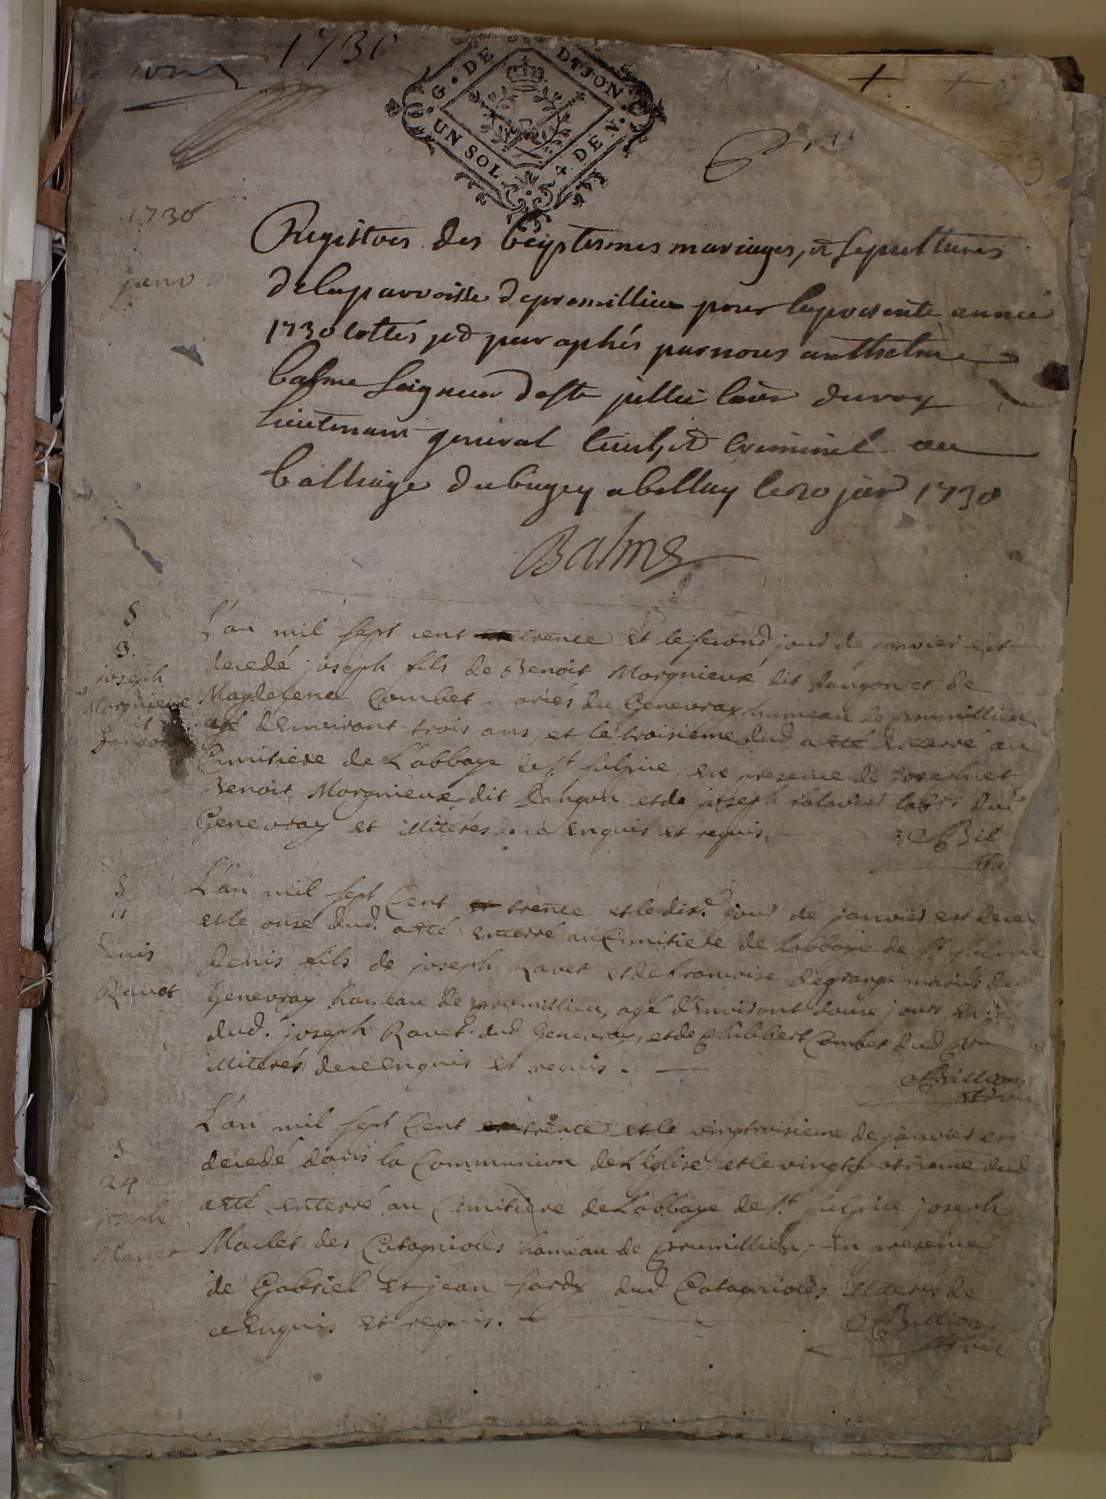 1730
G. DE DIJON
UN SOL 4 DEN.
1730
janv
Registres des baptesmes mariages, et sepultures
de la parroisse de promillieu pour la presente année
1730 cottés et paraphés par nous anthelme
balme seigneur de ste jullie du roy
lieutenant general criminel au
balliage du bugey a belley le 20 janr 1730
Balme
S
3.
joseph
Morgnieux
dit
L'an mil sept cent trente et le second jour de janvier est
decedé joseph fils de Benoit Morgnieux dit dangon et de
Magdelene Combet mariés du Genevray hameau de prumillieu
agé d'environt trois ans, et le troisieme dud a eté enterré au
Cimitiere de L'abbaye de st sulpice en presence de joseph et
Benoit Morgnieux dit dangon et de joseph labrs dud
Genevray et illiterés de ce enquis et requis.
S
11
Denis
Ravet
L'an mil sept Cent trente et le dixe jour de janvier est decedé
et le onse dud. a eté enterré au Cimitiere de Labbaye de st sulpice
Denis fils de joseph Ravet et de francoise degrange mariés du
Genevray hameau de prumillieu, agé d'environt douse jours en
dud. joseph Ravet dud Genevray, et de philibert Combet dud
illiterés de ce enquis et requis.
Billion
S
24
joseph
Maclet
L'an mil sept Cent trente et le vingtroisieme de janvier est
decedé dans la Communion de L'Eglise et le vingtquatrieme dud
a eté enterré au Cimitiere de L'abbaye de st sulpice joseph
Maclet des Catagnioles hameau de prumillieu, en presence
de Gabriel et jean dud Catagnioles illiterés de
ce Enquis et requis.
Billion